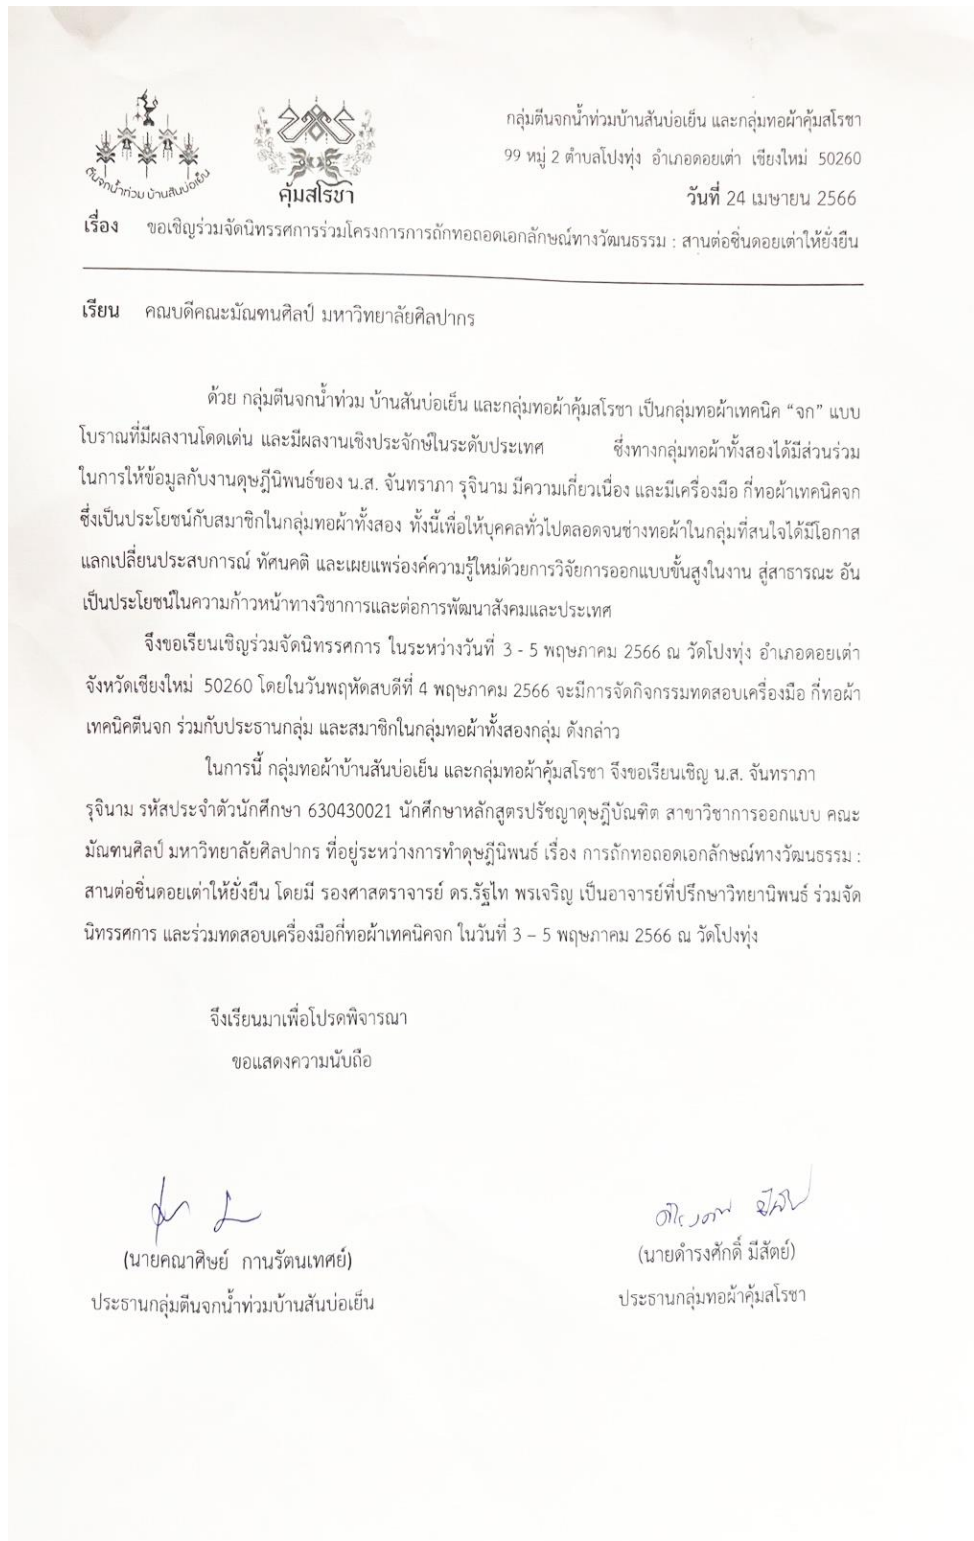 กลุ่มตีนจกน้ำท่วมบ้านสันบ่อเย็น และกลุ่มทอผ้าคุ้มสโรชา
99 หมู่ 2 ตำบลโปงทุ่ง อำเภอดอยเต่า เชียงใหม่ 50260
ตีนจกน้ำท่วม บ้านสันบ่อเย็น
คุ้มสโรชา
วันที่ 24 เมษายน 2566
เรื่อง ขอเชิญร่วมจัดนิทรรศการร่วมโครงการการถักทอถอดเอกลักษณ์ทางวัฒนธรรม : สานต่อซิ่นดอยเต่าให้ยั่งยืน
เรียน คณบดีคณะมัณฑนศิลป์ มหาวิทยาลัยศิลปากร
ด้วย กลุ่มตีนจกน้ำท่วม บ้านสันบ่อเย็น และกลุ่มทอผ้าคุ้มสโรชา เป็นกลุ่มทอผ้าเทคนิค “จก” แบบ
โบราณที่มีผลงานโดดเด่น และมีผลงานเชิงประจักษ์ในระดับประเทศ ซึ่งทางกลุ่มทอผ้าทั้งสองได้มีส่วนร่วม
ในการให้ข้อมูลกับงานดุษฎีนิพนธ์ของ น.ส. จันทราภา รุจินาม มีความเกี่ยวเนื่อง และมีเครื่องมือ กี่ทอผ้าเทคนิคจก
ซึ่งเป็นประโยชน์กับสมาชิกในกลุ่มทอผ้าทั้งสอง ทั้งนี้เพื่อให้บุคคลทั่วไปตลอดจนช่างทอผ้าในกลุ่มที่สนใจได้มีโอกาส
แลกเปลี่ยนประสบการณ์ ทัศนคติ และเผยแพร่องค์ความรู้ใหม่ด้วยการวิจัยการออกแบบขั้นสูงในงาน สู่สาธารณะ อัน
เป็นประโยชน์ในความก้าวหน้าทางวิชาการและต่อการพัฒนาสังคมและประเทศ
จึงขอเรียนเชิญร่วมจัดนิทรรศการ ในระหว่างวันที่ 3 - 5 พฤษภาคม 2566 ณ วัดโปงทุ่ง อำเภอดอยเต่า
จังหวัดเชียงใหม่ 50260 โดยในวันพฤหัดสบดีที่ 4 พฤษภาคม 2566 จะมีการจัดกิจกรรมทดสอบเครื่องมือ กี่ทอผ้า
เทคนิคตีนจก ร่วมกับประธานกลุ่ม และสมาชิกในกลุ่มทอผ้าทั้งสองกลุ่ม ดังกล่าว
ในการนี้ กลุ่มทอผ้าบ้านสันบ่อเย็น และกลุ่มทอผ้าคุ้มสโรชา จึงขอเรียนเชิญ น.ส. จันทราภา
รุจินาม รหัสประจำตัวนักศึกษา 630430021 นักศึกษาหลักสูตรปรัชญาดุษฎีบัณฑิต สาขาวิชาการออกแบบ คณะ
มัณฑนศิลป์ มหาวิทยาลัยศิลปากร ที่อยู่ระหว่างการทำดุษฎีนิพนธ์ เรื่อง การถักทอถอดเอกลักษณ์ทางวัฒนธรรม :
สานต่อซิ่นดอยเต่าให้ยั่งยืน โดยมี รองศาสตราจารย์ ดร.รัฐไท พรเจริญ เป็นอาจารย์ที่ปรึกษาวิทยานิพนธ์ ร่วมจัด
นิทรรศการ และร่วมทดสอบเครื่องมือกี่ทอผ้าเทคนิคจก ในวันที่ 3 – 5 พฤษภาคม 2566 ณ วัดโปงทุ่ง
จึงเรียนมาเพื่อโปรดพิจารณา
ขอแสดงความนับถือ
(นายคณาศิษย์ กานรัตนเทศย์)
(นายดำรงศักดิ์ มีสัตย์)
ประธานกลุ่มตีนจกน้ำท่วมบ้านสันบ่อเย็น
ประธานกลุ่มทอผ้าคุ้มสโรชา